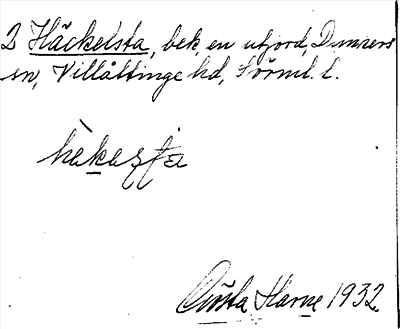 2 Häckelsta, bek. en utjord, Dunkers
sn, Villåttinge hd, Sörml. l.
hàkasta
Gösta Harne 1932.